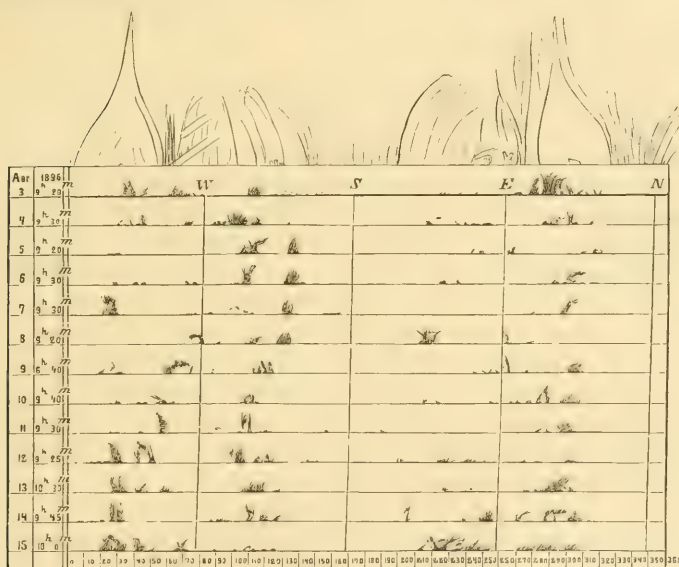 Apr 1896
W S E N
3 9h 20m
4 9h 30m
5 9h 20m
6 9h 30m
7 9h 30m
8 9h 20m
9 40m
10 9h 40m
11 9h 30m
12 9h 25m
13 12h 30m
14 9h 45m
15 10h 0m
0 10 20 30 40 50 60 70 80 90 100 110 120 130 140 150 160 170 180 190 200 210 220 230 240 250 260 270 280 290 300 310 320 330 340 350 360